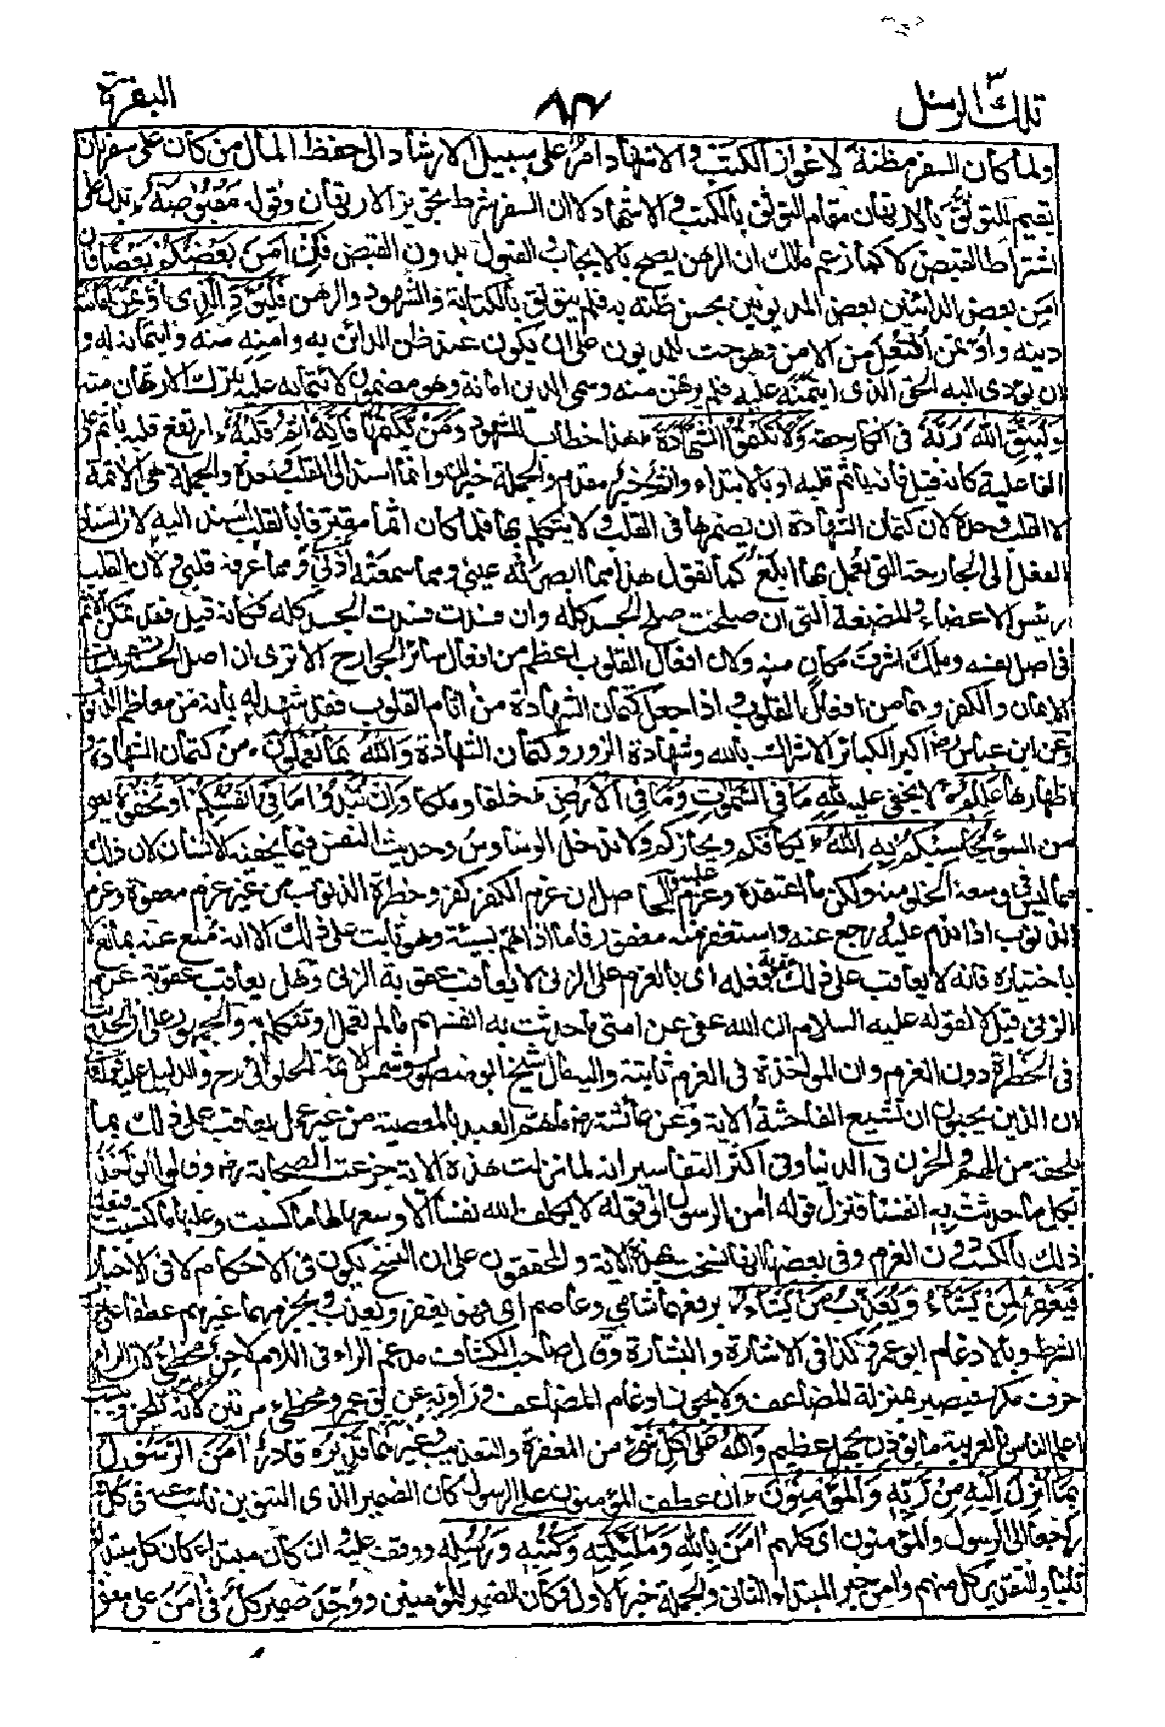 تلك الرسل ٣
٨٢
البقرة
ولما كان السفر مظنة لاعواز الكتب والاشهاد امر على سبيل الارشاد الى حفظ المال من كان على سفر بان
يقيم التوثق بالارتهان مقام التوثق بالكتب والاشهاد لا ان السفر شرط تجويز الارتهان وقوله مَقْبُوْضَةٌ يدل على
اشتراط القبض لا كما زعم مالك ان الرهن يصح بالايجاب والقبول بدون القبض فَاِنْ اَمِنَ بَعْضُكُمْ بَعْضًا فان
امن بعض الدائنين بعض المديونين بحسن ظنه به فلم يتوثق بالكتابة والشهود والرهن فَلْيُؤَدِّ الَّذِى اؤْتُمِنَ اَمَانَتَهٗ
دينه واؤتمن افتعل من الامن وهو حث للمديون على ان يكون عند ظن الدائن به وامنه منه وايتمانه له و
ان يؤدى اليه الحق الذى ايتمنه عليه فلم يرتهن منه وسمى الدين امانة وهو مضمون لائتمانه عليه بترك الارتهان منه
وَلْيَتَّقِ اللّٰهَ رَبَّهٗ فى انكار حقه وَلَا تَكْتُمُوا الشَّهَادَةَ هذا خطاب للشهود وَمَنْ يَّكْتُمْهَا فَاِنَّهٗ اٰثِمٌ قَلْبُهٗ ارتفع قلبه باٰثم على
الفاعلية كانه قيل فانه ياثم قلبه او بالابتداء واٰثم خبر مقدم والجملة خبر ان وانما اسند الى القلب وحده والجملة هى الاٰثمة
لا القلب وحده لان كتمان الشهادة ان يضمرها فى القلب ولا يتكلم بها فلما كان اثما مقترفا بالقلب اسند اليه لان اسناد
الفعل الى الجارحة التى يعمل بها ابلغ كما تقول هذا مما ابصرته عينى ومما سمعته اذنى ومما عرفه قلبى ولان القلب
رئيس الاعضاء والمضغة التى ان صلحت صلح الجسد كله وان فسدت فسدت الجسد كله فكانه قيل فقد تمكن الاثم
فى اصل نفسه وملك اشرف مكان منه ولان افعال القلوب اعظم من افعال سائر الجوارح الا ترى ان اصل الحسنات والسيئات
الايمان والكفر وهما من افعال القلوب واذا جعل كتمان الشهادة من اٰثام القلوب فقد شهد له بانه من معاظم الذنوب
وعن ابن عباس رض اكبر الكبائر الاشراك بالله وشهادة الزور وكتمان الشهادة وَاللّٰهُ بِمَا تَعْمَلُوْنَ من كتمان الشهادة و
اظهارها عَلِيْمٌ لا يخفى عليه لِلّٰهِ مَا فِى السَّمٰوٰتِ وَمَا فِى الْاَرْضِ خلقا وملكا وَاِنْ تُبْدُوْا مَا فِىْ اَنْفُسِكُمْ اَوْ تُخْفُوْهُ يعنى
من السوء يُحَاسِبْكُمْ بِهِ اللّٰهُ يكافئكم ويجازكم ولا تدخل الوساوس وحديث النفس فيما يخفيه الانسان لان ذلك
مما ليس فى وسعه الخلو منه ولكن ما اعتقده وعزم عليه والحاصل ان عزم الكفر كفر وخطرة الذنوب من غير عزم معفوة وعزم
الذنوب اذا ندم عليه ورجع عنه واستغفر منه مغفور فاما اذا هم بسيئة وهو ثابت على ذلك الا انه منع عنه بمانع لا
باختياره فانه لا يعاقب على ذلك عقوبة فعله اى بالعزم على الزنى لا يعاقب عقوبة الزنى وهل يعاقب عقوبة عزم
الزنى قيل لا لقوله عليه السلام ان الله عفى عن امتى ما حدثت به انفسهم ما لم تعمل او تتكلم به والجمهور على ان الحديث
فى الخطرة دون العزم وان المؤاخذة فى العزم ثابتة واليه مال الشيخ ابو منصور وشمس الائمة الحلوائى رح والدليل عليه قوله تعالى
ان الذين يحبون ان تشيع الفاحشة الاٰية وعن عائشة رض ما هم العبد بالمعصية من غير عمل يعاقب على ذلك بما
يلحقه من الهم والحزن فى الدنيا وفى اكثر التفاسير انه لما نزلت هذه الاٰية جزعت الصحابة رض وقالوا انؤاخذ
بكل ما حدثت به انفسنا فنزل قوله اٰمن الرسول الى قوله لا يكلف الله نفسا الا وسعها لها ما كسبت وعليها ما اكتسبت فتعلق
ذلك بالكسب دون العزم وفى بعضها انها نسخت بهذه الاٰية والمحققون على ان النسخ يكون فى الاحكام لا فى الاخبار
فَيَغْفِرُ لِمَنْ يَّشَآءُ وَيُعَذِّبُ مَنْ يَّشَآءُ برفعهما شامى وعاصم اى فهو يغفر ويعذب وبجزمهما غيرهم عطفا على جواب
الشرط وبالادغام ابو عمرو كذا فى الاشارة والبشارة وقال صاحب الكشاف مدغم الراء فى اللام لاحن مخطئ لان الراء
حرف مكرر فيصير بمنزلة المضاعف ولا يجوز ادغام المضاعف وراويه عن ابى عمرو مخطئ مرتين لانه يلحن وينسب الى
اعلم الناس فى العربية ما يؤذن بجهل عظيم وَاللّٰهُ عَلٰى كُلِّ شَىْءٍ من المغفرة والتعذيب وغيرهما قَدِيْرٌ قادر اٰمَنَ الرَّسُوْلُ
بِمَآ اُنْزِلَ اِلَيْهِ مِنْ رَّبِّهٖ وَالْمُؤْمِنُوْنَ ان عطف المؤمنون على الرسول كان الضمير الذى التنوين نائب عنه فى كل
راجعا الى الرسول والمؤمنون اى كلهم اٰمَنَ بِاللّٰهِ وَمَلٰٓئِكَتِهٖ وَكُتُبِهٖ وَرُسُلِهٖ ووقف عليه وان كان مبتدأ كان كل مبتدأ
ثانيا والتقدير كل منهم واٰمن خبر المبتدأ الثانى والجملة خبر الاول وكان الضمير للمؤمنين ووحد ضمير كل فى اٰمن على معنى